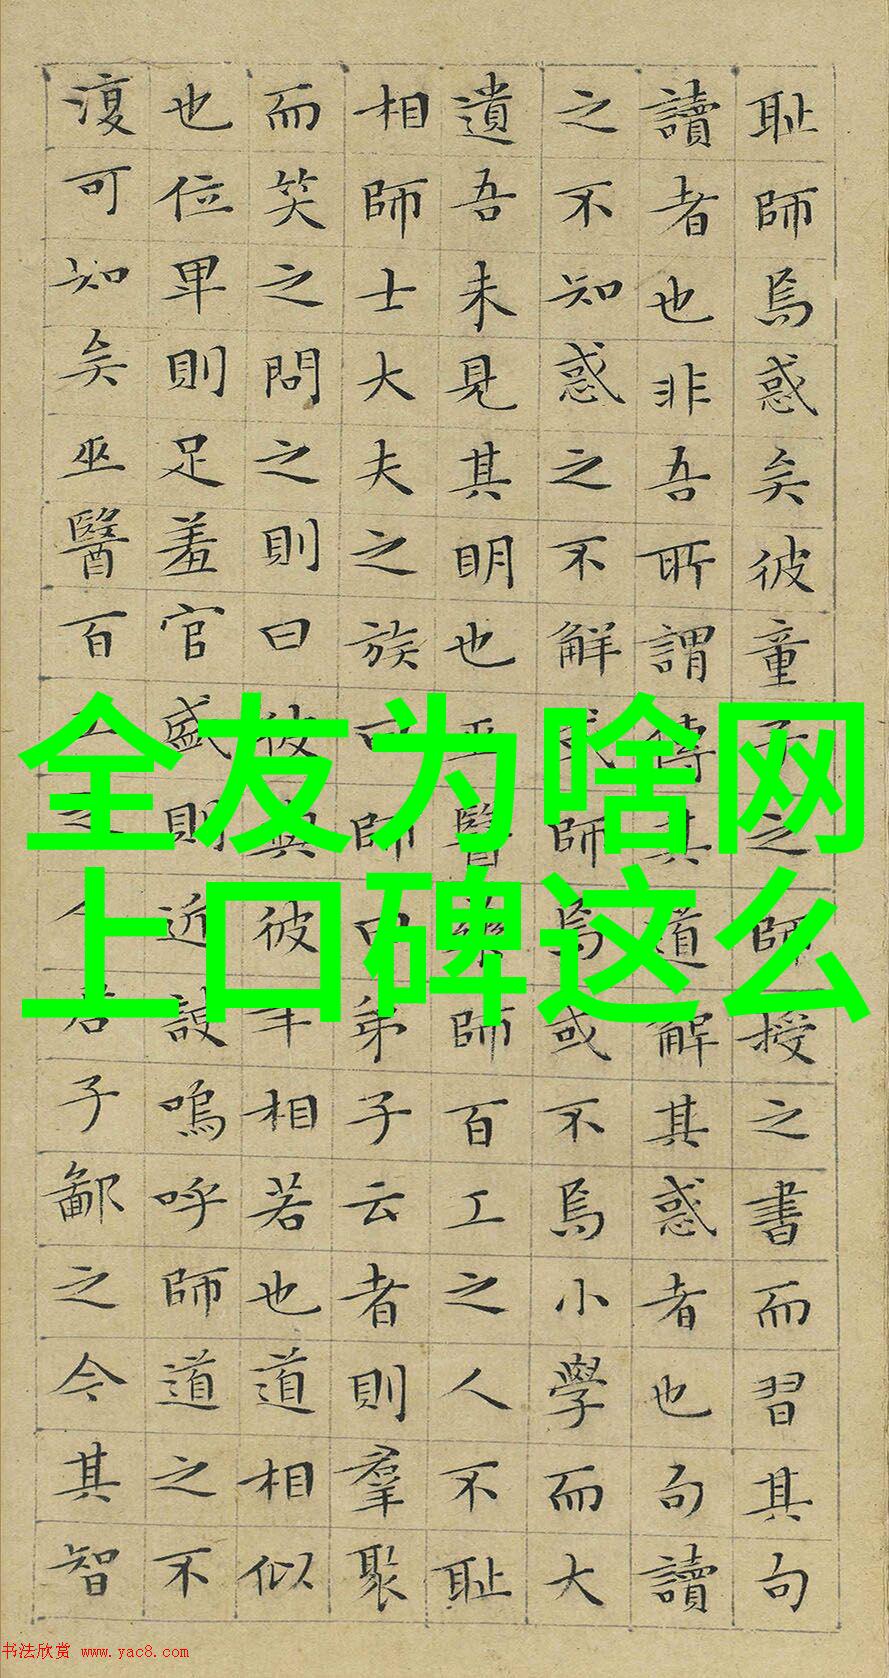 耻師焉惑矣彼童子之師授之書而習其句
讀者也非吾所謂傳其道解其惑者也句讀
之不知惑之不解或師焉或不焉小學而大
遺吾未見其明也巫醫樂師百工之人不耻
相師士大夫之族曰師曰弟子云者則羣聚
而笑之問之則曰彼與彼年相若也道相似
也位卑則足羞官盛則近諛嗚呼師道之不
復可知矣巫醫百工之君子鄙之今其智
全友为啥网
上口碑这么
书法欣赏 www.yac8.com